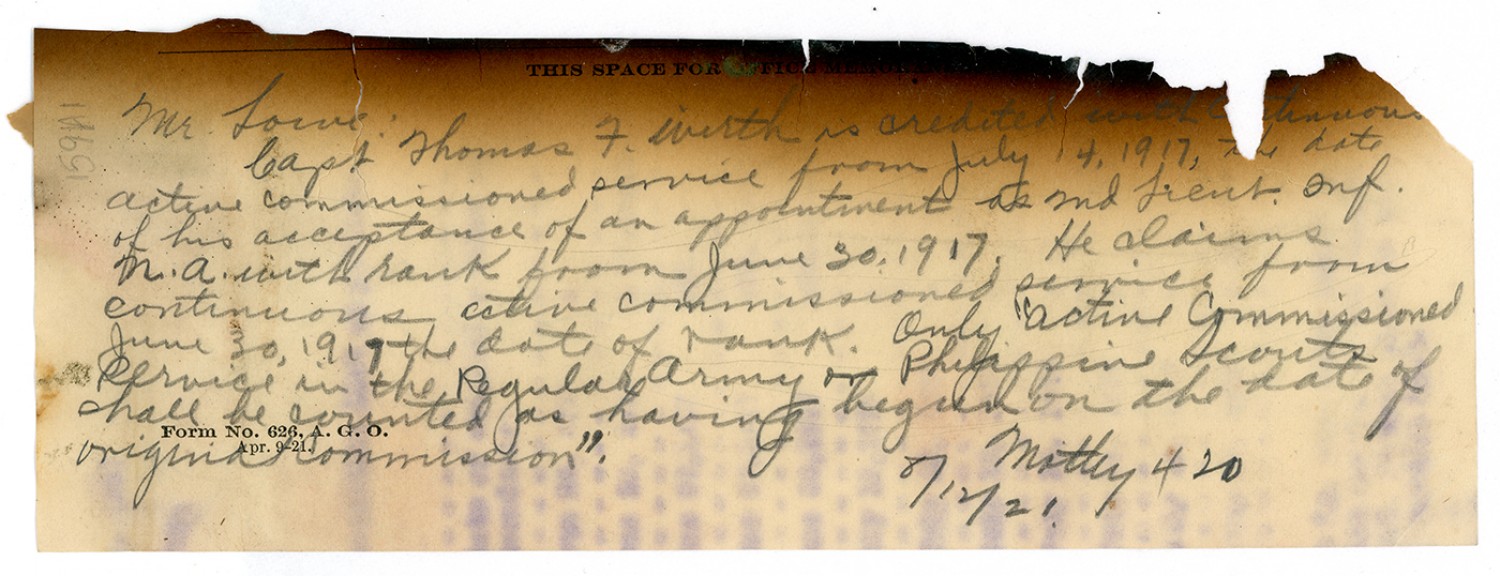 THIS SPACE FOR OFFICE
Mr. Lowe:
Capt Thomas F. Wirth is credited with continuous
active commissioned service from July 14, 1917, the date
of his acceptance of an appointment as 2nd Lieut. Inf.
N.A. with rank from June 30, 1917. He claims
continuous active commissioned service from
June 30, 1917 the date of rank. Only "active Commissioned
service in the Regular Army or Philippine Scouts
shall be counted as having begun on the date of
original commission".
Form No. 626, A. G. O.
Apr. 9-21.
Mottey 420
8/12/21.